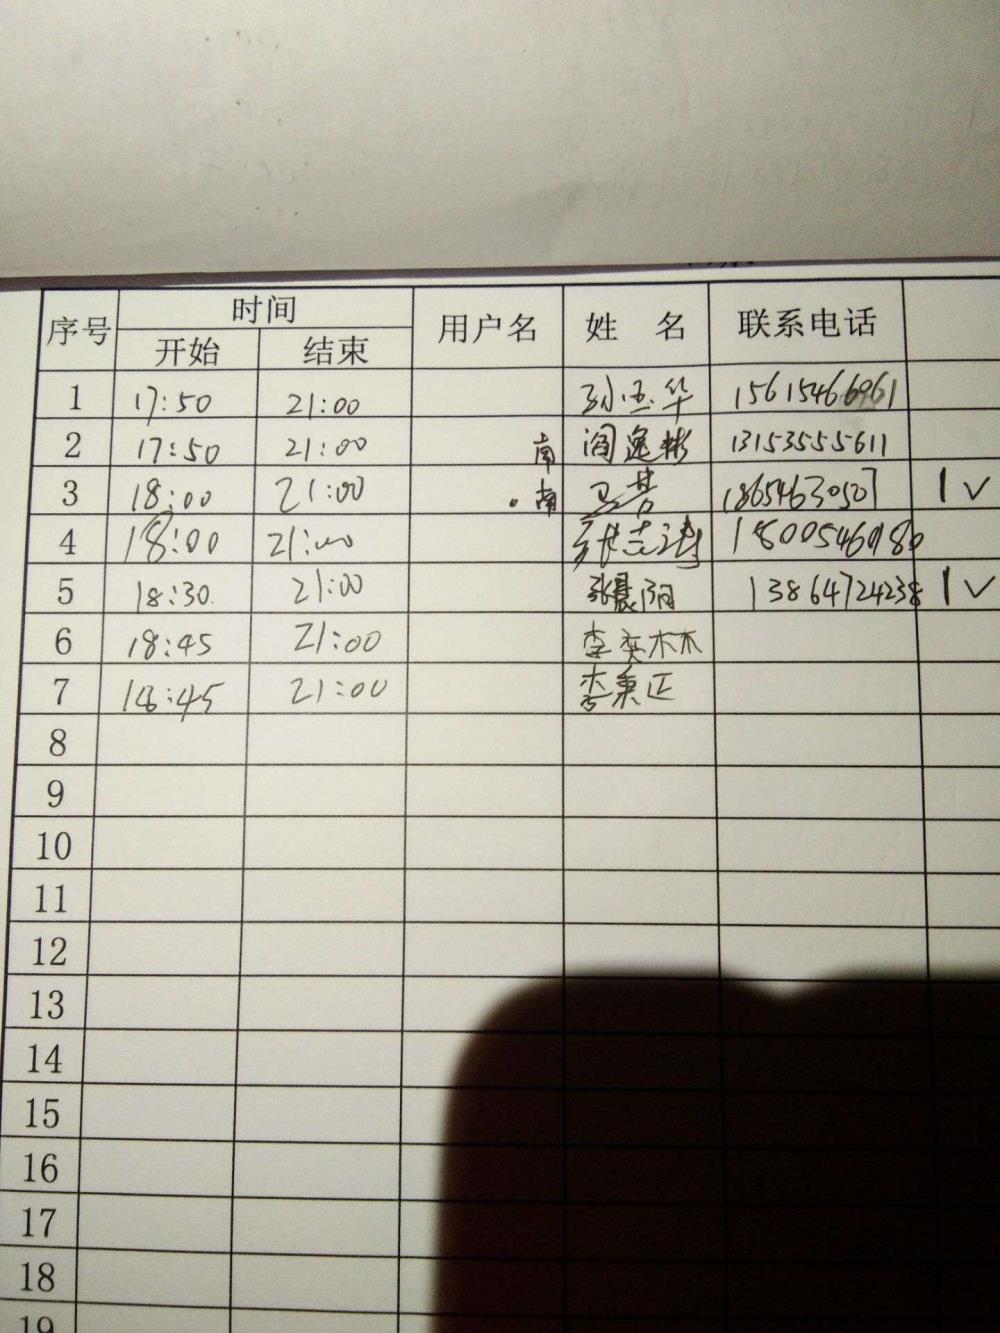 序号 时间 用户名 姓 名 联系电话
开始 结束
1 17:50 21:00 孙玉华 15615466961
2 17:50 21:00 南 阎逸彬 13153555611
3 18:00 21:00 南 王芳 18654630507 1 ✓
4 18:00 21:00 张志涛 18005460180
5 18:30. 21:00 张晨阳 13864724238 1 ✓
6 18:45 21:00 李奕林
7 18:45 21:00 李秉正
8
9
10
11
12
13
14
15
16
17
18
19